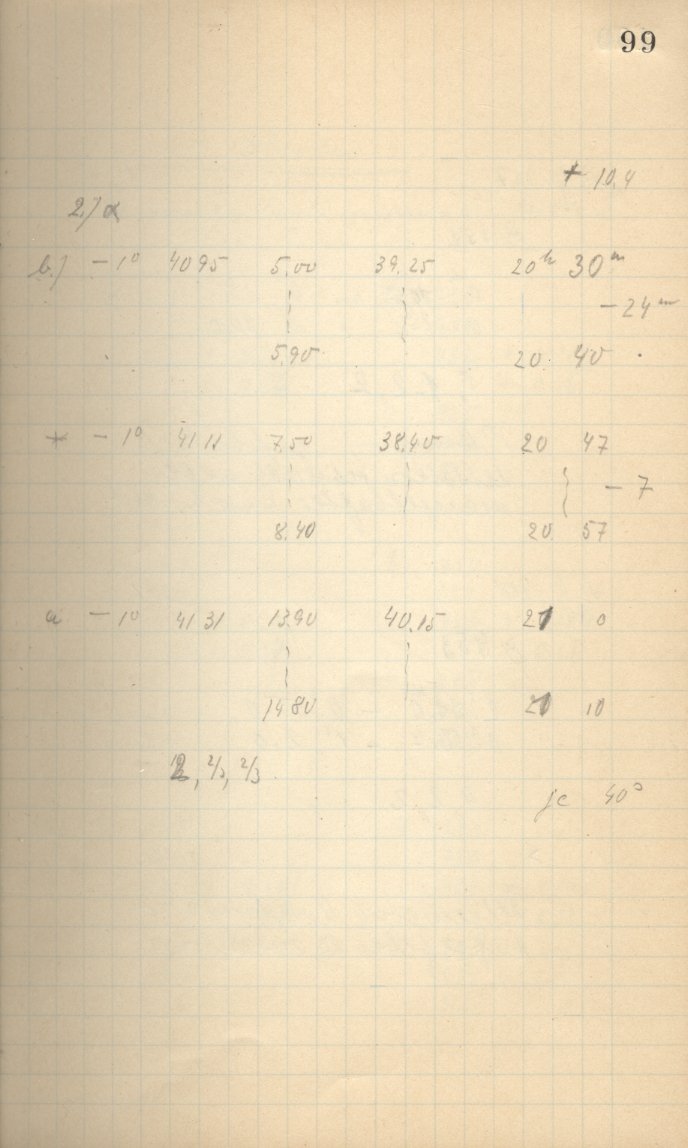 99
+ 10,4
2.) α
b.) - 1° 40 95 5,00 39,25 20h 30m
- 24m
5,90 20 40
* - 1° 41 11 7,50 38,40 20 47
- 7
8,40 20 57
a - 1° 41 31 13,90 40,15 21 0
14 80 21 10
2/3, 2/3
je 40°